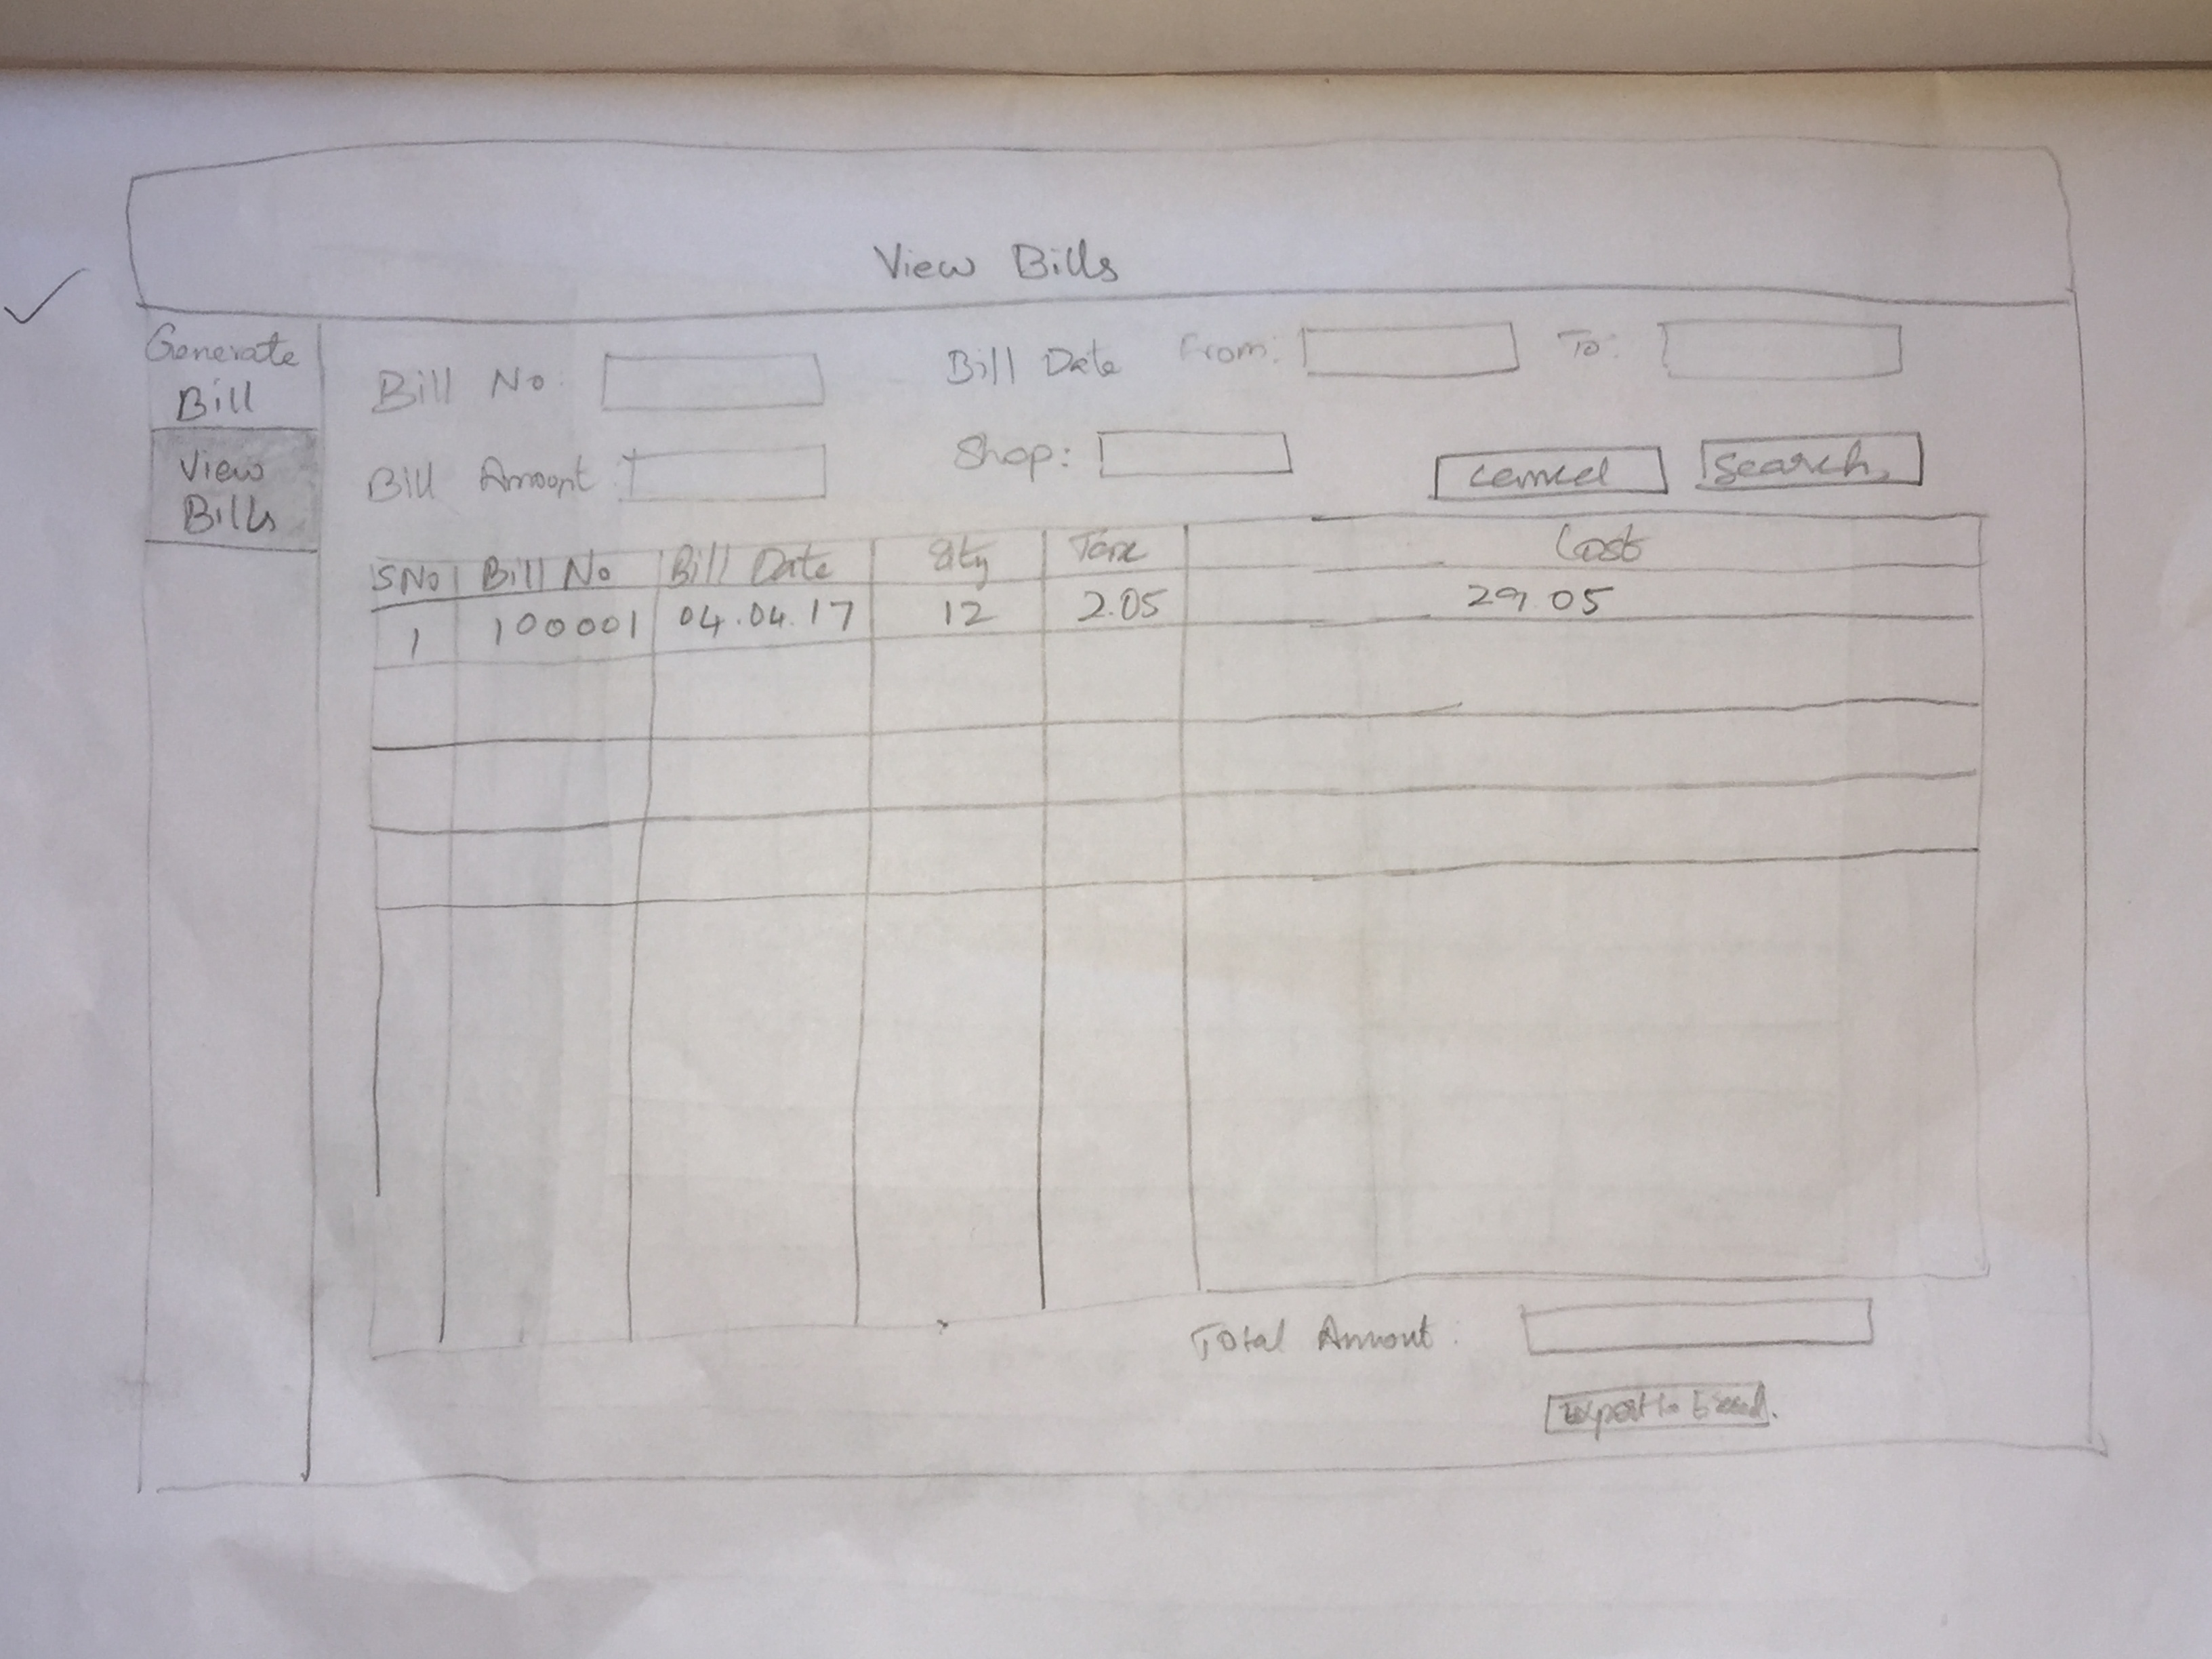 View Bills
Generate
Bill
View
Bills
Bill No:
Bill Date From: To:
Bill Amount:
Shop:
Cancel Search
SNo Bill No Bill Date Qty Tax Cost
1 100001 04.04.17 12 2.05 29.05
Total Amount:
Export to Excel.